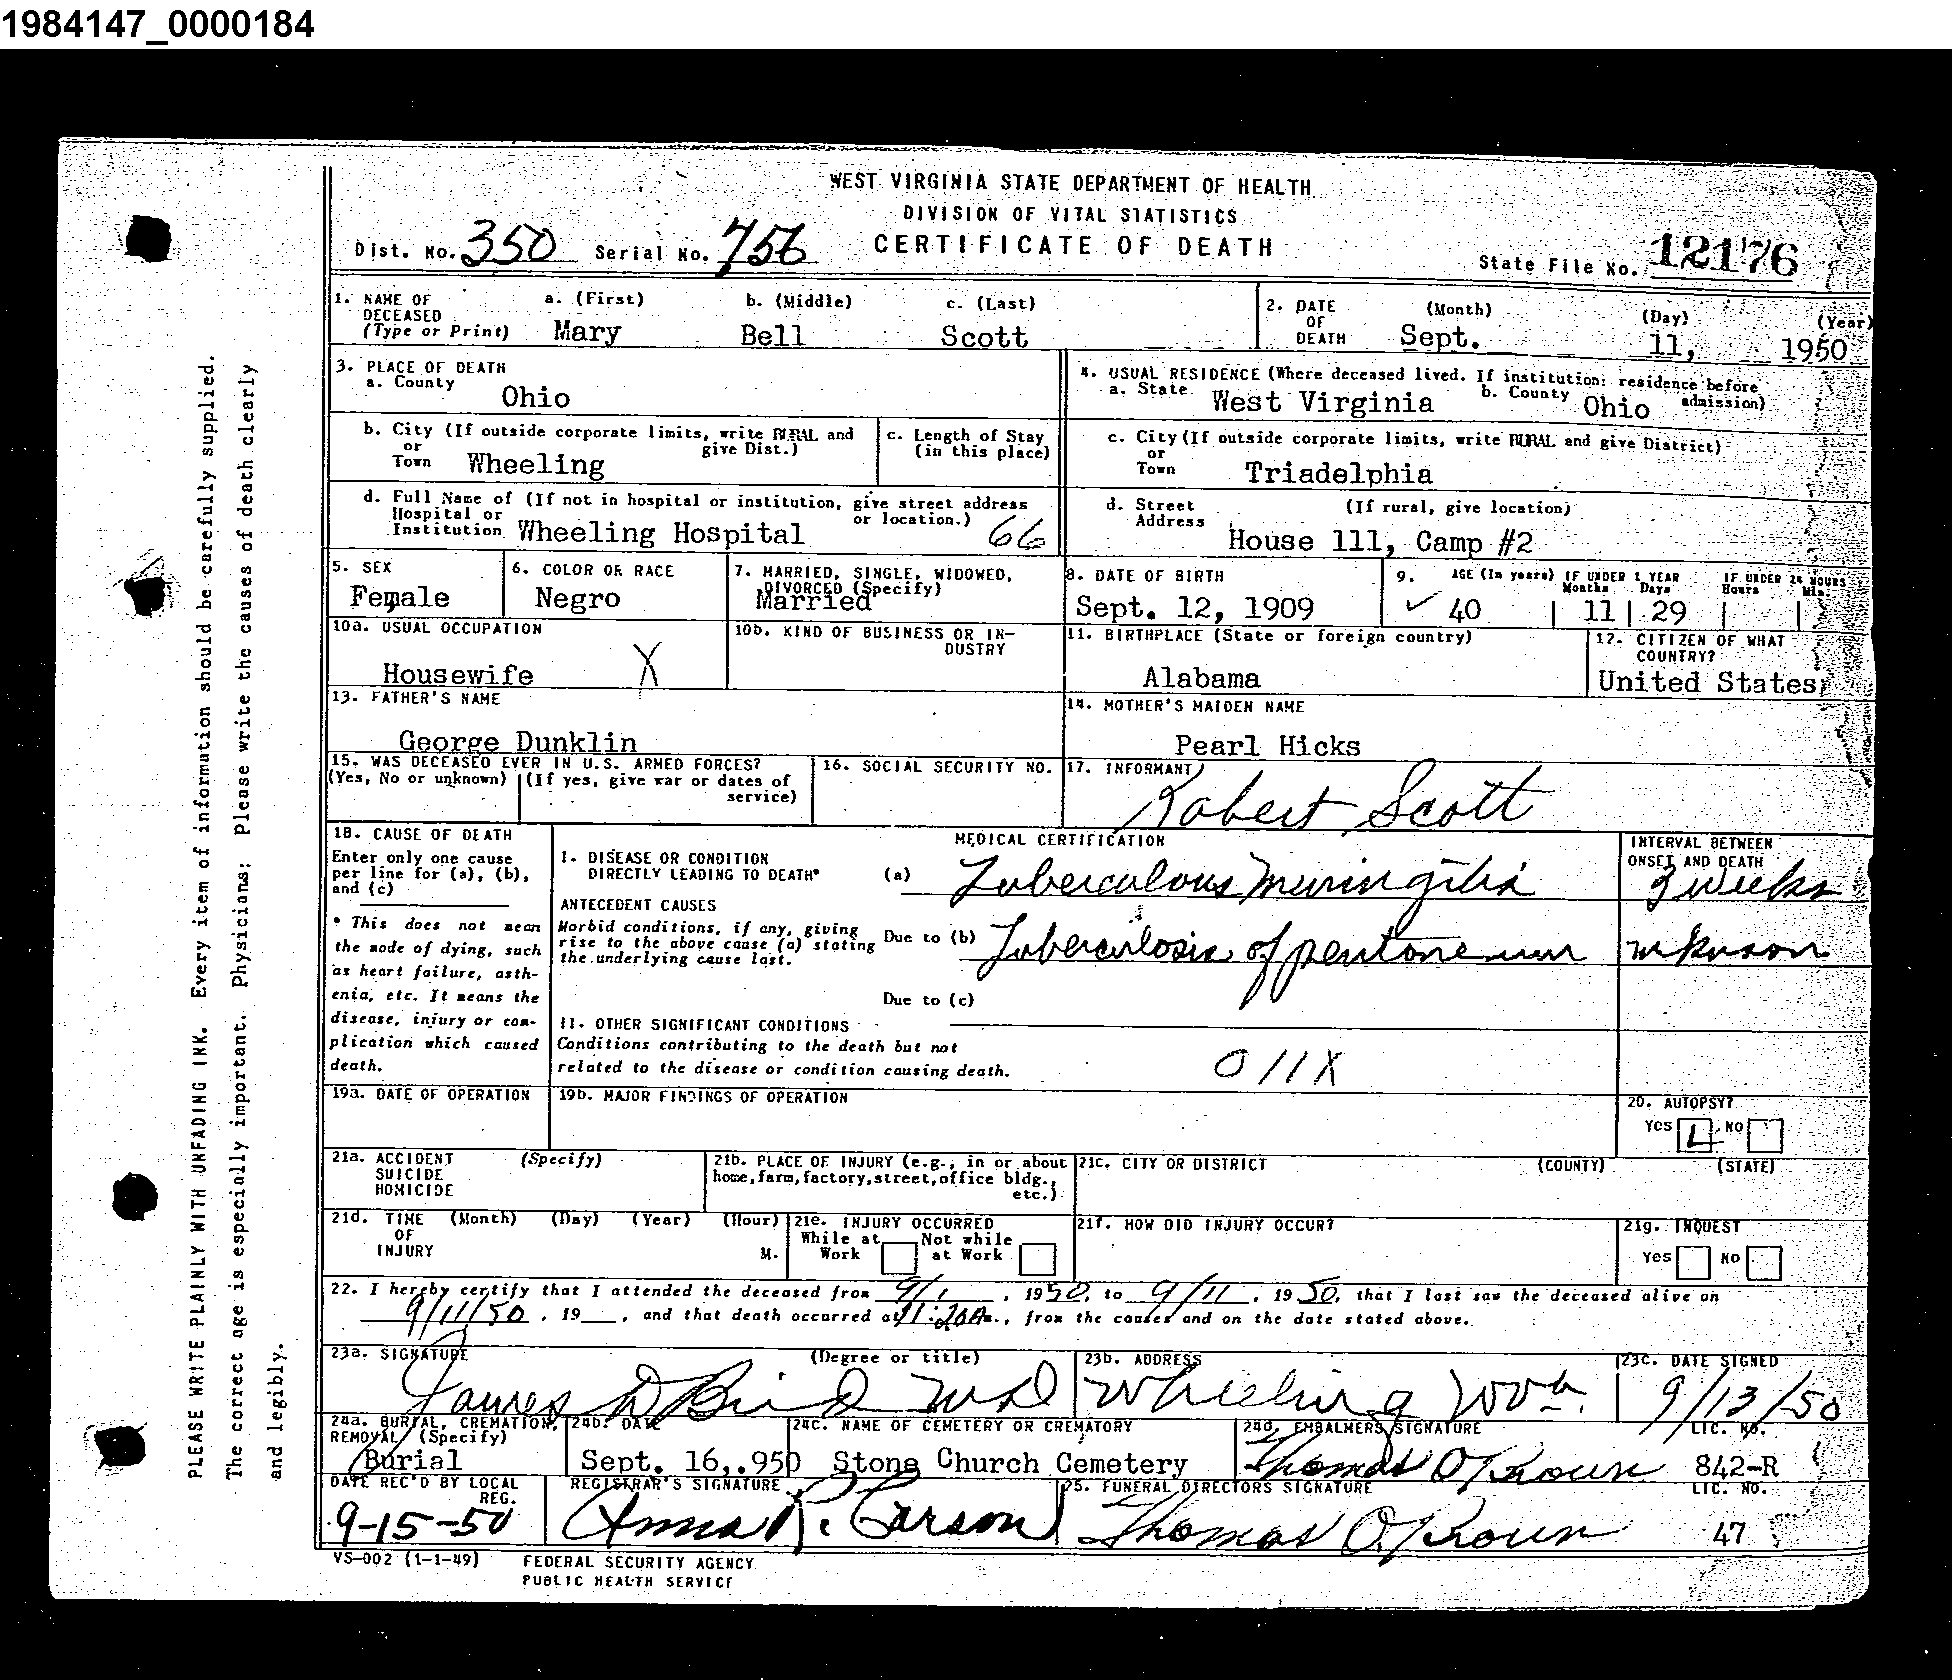 1984147_0000184
WEST VIRGINIA STATE DEPARTMENT OF HEALTH
DIVISION OF VITAL STATISTICS
Dist. No. 350 Serial No. 756 CERTIFICATE OF DEATH State File No. 12176
1. NAME OF DECEASED (Type or Print) a. (First) Mary b. (Middle) Bell c. (Last) Scott
2. DATE OF DEATH (Month) Sept. (Day) 11, (Year) 1950
3. PLACE OF DEATH
a. County Ohio
4. USUAL RESIDENCE (Where deceased lived. If institution: residence before admission)
a. State West Virginia b. County Ohio
b. City (If outside corporate limits, write RURAL and give Dist.)
or Town Wheeling
c. Length of Stay (in this place)
c. City (If outside corporate limits, write RURAL and give District)
or Town Triadelphia
d. Full Name of (If not in hospital or institution, give street address or location.)
Hospital or Institution Wheeling Hospital 66
d. Street Address (If rural, give location)
House 111, Camp #2
5. SEX Female
6. COLOR OR RACE Negro
7. MARRIED, SINGLE, WIDOWED, DIVORCED (Specify) Married
8. DATE OF BIRTH Sept. 12, 1909
9. AGE (In years) ✓ 40 IF UNDER 1 YEAR Months 11 Days 29 IF UNDER 24 HOURS Hours Min.
10a. USUAL OCCUPATION Housewife X
10b. KIND OF BUSINESS OR INDUSTRY
11. BIRTHPLACE (State or foreign country) Alabama
12. CITIZEN OF WHAT COUNTRY? United States
13. FATHER'S NAME George Dunklin
14. MOTHER'S MAIDEN NAME Pearl Hicks
15. WAS DECEASED EVER IN U.S. ARMED FORCES?
(Yes, No or unknown) (If yes, give war or dates of service)
16. SOCIAL SECURITY NO.
17. INFORMANT Robert Scott
18. CAUSE OF DEATH
Enter only one cause per line for (a), (b), and (c)
* This does not mean the mode of dying, such as heart failure, asthenia, etc. It means the disease, injury or complication which caused death.
MEDICAL CERTIFICATION
INTERVAL BETWEEN ONSET AND DEATH
I. DISEASE OR CONDITION DIRECTLY LEADING TO DEATH* (a) Tuberculous Meningitis 3 weeks
ANTECEDENT CAUSES
Morbid conditions, if any, giving rise to the above cause (a) stating the underlying cause last.
Due to (b) Tuberculosis of peritoneum
Due to (c)
II. OTHER SIGNIFICANT CONDITIONS
Conditions contributing to the death but not related to the disease or condition causing death.
011X
19a. DATE OF OPERATION
19b. MAJOR FINDINGS OF OPERATION
20. AUTOPSY?
Yes No
21a. ACCIDENT SUICIDE HOMICIDE (Specify)
21b. PLACE OF INJURY (e.g., in or about home, farm, factory, street, office bldg., etc.)
21c. CITY OR DISTRICT (COUNTY) (STATE)
21d. TIME OF INJURY (Month) (Day) (Year) (Hour) M.
21e. INJURY OCCURRED
While at Work Not while at Work
21f. HOW DID INJURY OCCUR?
21g. INQUEST
Yes No
22. I hereby certify that I attended the deceased from 9/1, 1950, to 9/11, 1950, that I last saw the deceased alive on
9/11/50, 19__, and that death occurred at 11:20A m., from the causes and on the date stated above.
23a. SIGNATURE (Degree or title) James D Bird MD
23b. ADDRESS Wheeling W Va.
23c. DATE SIGNED 9/13/50
24a. BURIAL, CREMATION, REMOVAL (Specify) Burial
24b. DATE Sept. 16,.950
24c. NAME OF CEMETERY OR CREMATORY Stone Church Cemetery
24d. EMBALMERS SIGNATURE LIC. NO. 842-R
DATE REC'D BY LOCAL REG. 9-15-50
REGISTRAR'S SIGNATURE Anna R. Carson
25. FUNERAL DIRECTORS SIGNATURE LIC. NO. 47
VS-002 (1-1-49) FEDERAL SECURITY AGENCY
PUBLIC HEALTH SERVICE
PLEASE WRITE PLAINLY WITH UNFADING INK. Every item of information should be carefully supplied.
The correct age is especially important. Physicians: Please write the causes of death clearly
and legibly.